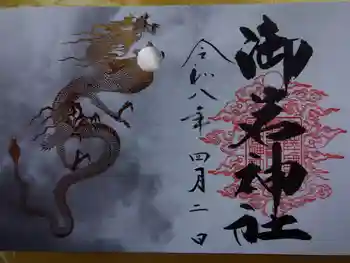 御岩神社
令和八年四月二日